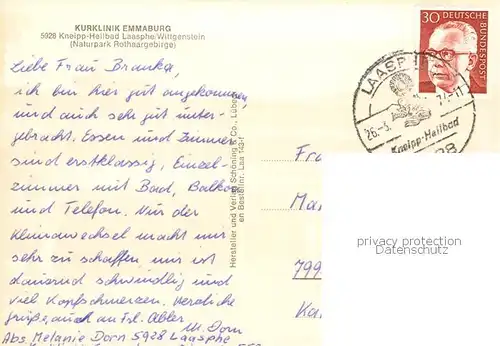 KURKLINIK EMMABURG
5928 Kneipp-Heilbad Laasphe/Wittgenstein
(Naturpark Rothaargebirge)
Liebe Frau Branka,
ich bin hier gut angekommen
und auch sehr gut unter-
gebracht. Essen und Zimmer
sind erstklassig, Einzel-
zimmer mit Bad, Balkon
und Telefon. Nur der
Klimawechsel macht mir
sehr zu schaffen mir ist
dauernd schwindlig und
viel Kopfschmerzen. Herzliche
Grüße, auch an Frl. Abler
M. Dorn
Abs. Melanie Dorn 5928 Laasphe
Hersteller und Verlag Schöning & Co., Lübeck
Bestellnr. Laa
30 DEUTSCHE
BUNDESPOST
LAASPHE
26.-3.
Kneipp-Heilbad
Fra
Ma
799
Ka
privacy protection
Datenschutz